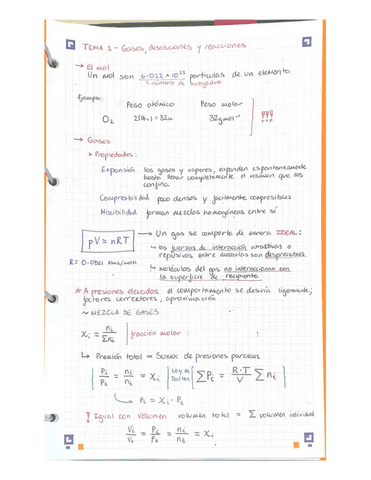 TEMA 1 - Gases, disoluciones y reacciones
→ El mol
Un mol son 6.022 x 10²³ partículas de un elemento.
(número de avogadro)
Ejemplo:
Peso atómico Peso molar
O₂ 2(16u) = 32u 32gmol⁻¹ !!!
→ Gases
▸ Propiedades:
Expansión los gases y vapores, expanden espontáneamente
hasta llenar completamente el volumen que los
confina.
Compresibilidad poco densos y facilmente compresibles
Miscibilidad forman mezclas homogéneas entre sí
pV = nRT → Un gas se comporta de manera IDEAL:
R = 0.0821
↳ las fuerzas de interacción atractivas o
repulsivas entre moléculas son despreciables
↳ moléculas del gas no interaccionan con
la superficie de recipiente.
* A presiones elevadas el comportamiento se desvía ligeramente;
factores correctores, aproximación
~ MEZCLA DE GASES
χᵢ = nᵢ / Σnᵢ | fracción molar
↳ Presión total = Suma de presiones parciales
Pᵢ/Pₜ = nᵢ/nₜ = χᵢ | Ley de Dalton | ΣPᵢ = R·T/V Σnᵢ
↳ Pᵢ = χᵢ · Pₜ
! Igual con volumen volumen total = Σ volumen individual
Vᵢ/Vₜ = Pᵢ/Pₜ = nᵢ/nₜ = χᵢ